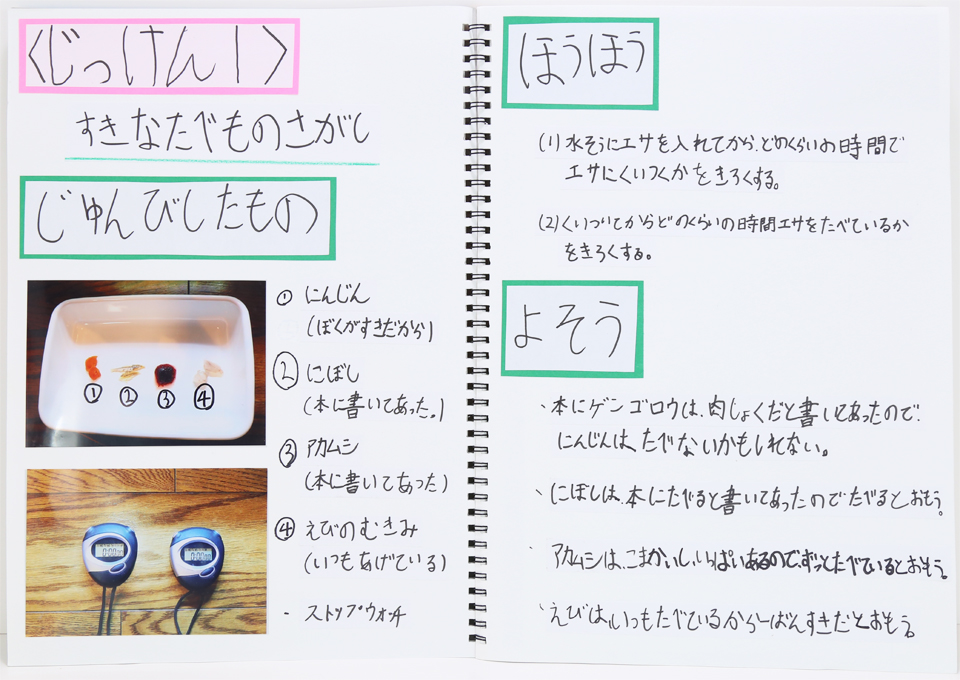 〈じっけん1〉
すきなたべものさがし
じゅんびしたもの
① ② ③ ④
① にんじん
(ぼくがすきだから)
② にぼし
(本に書いてあった。)
③ アカムシ
(本に書いてあった)
④ えびのむきみ
(いつもあげている)
・ストップウォッチ
ほうほう
(1) 水そうにエサを入れてから、どのくらいの時間で
エサにくいつくかをきろくする。
(2) くいついてからどのくらいの時間エサをたべているか
をきろくする。
よそう
、本にゲンゴロウは、肉しょくだと書いてあったので、
にんじんは、たべないかもしれない。
、にぼしは、本にたべると書いてあったのでたべるとおもう。
、アカムシは、こまかいし、いっぱいあるので、ずっとたべているとおもう。
、えびは、いつもたべているから一ばんすきだとおもう。